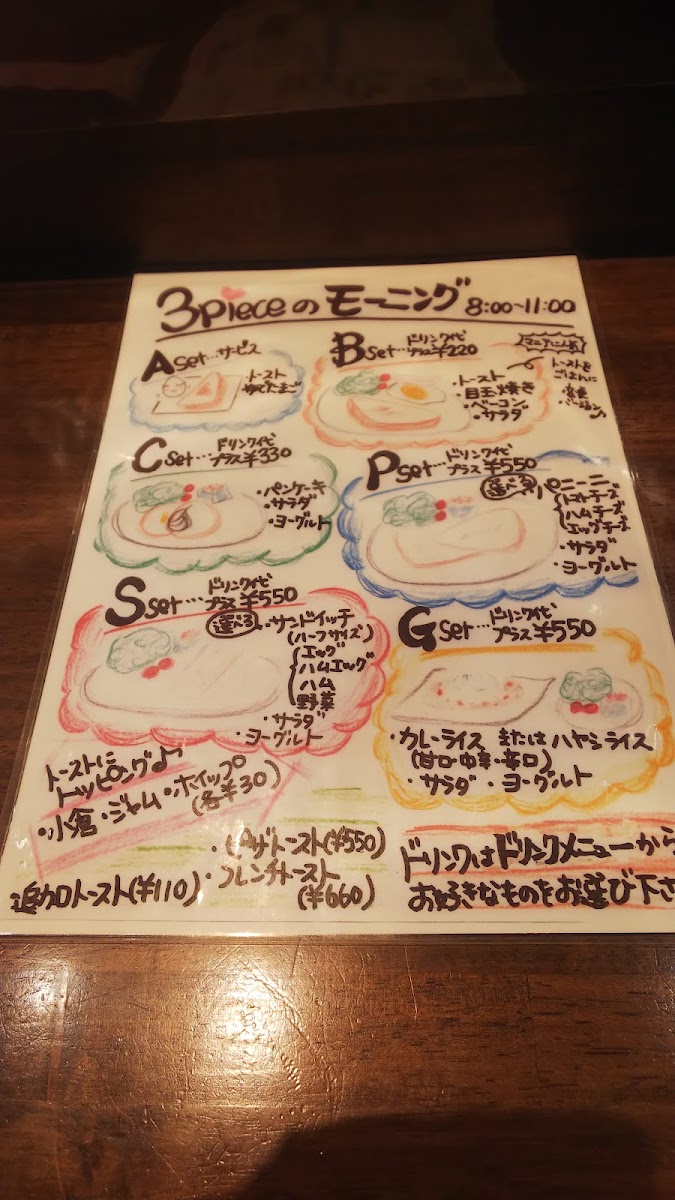 3pieceの モーニング 8:00~11:00
A set…サービス
・トースト
ゆでたまご
B set…ドリンク代
プラス¥220
・トースト
・目玉焼き
・ベーコン
・サラダ
トーストを
ごはんに
C set…ドリンク代
プラス¥330
・パンケーキ
・サラダ
・ヨーグルト
P set…ドリンク代
プラス¥550
選べる パニーニ
トマトチーズ
ハムチーズ
エッグチーズ
・サラダ
・ヨーグルト
S set…ドリンク代
プラス¥550
選べる サンドイッチ
(ハーフサイズ)
エッグ
ハムエッグ
ハム
野菜
・サラダ
・ヨーグルト
G set…ドリンク代
プラス¥550
・カレーライス または ハヤシライス
(甘口・中辛・辛口)
・サラダ ・ヨーグルト
トーストに
トッピング♪
・小倉・ジャム・ホイップ
(各¥30)
・ピザトースト(¥550)
追加トースト(¥110)・フレンチトースト
(¥660)
ドリンクはドリンクメニューから
お好きなものをお選び下さ